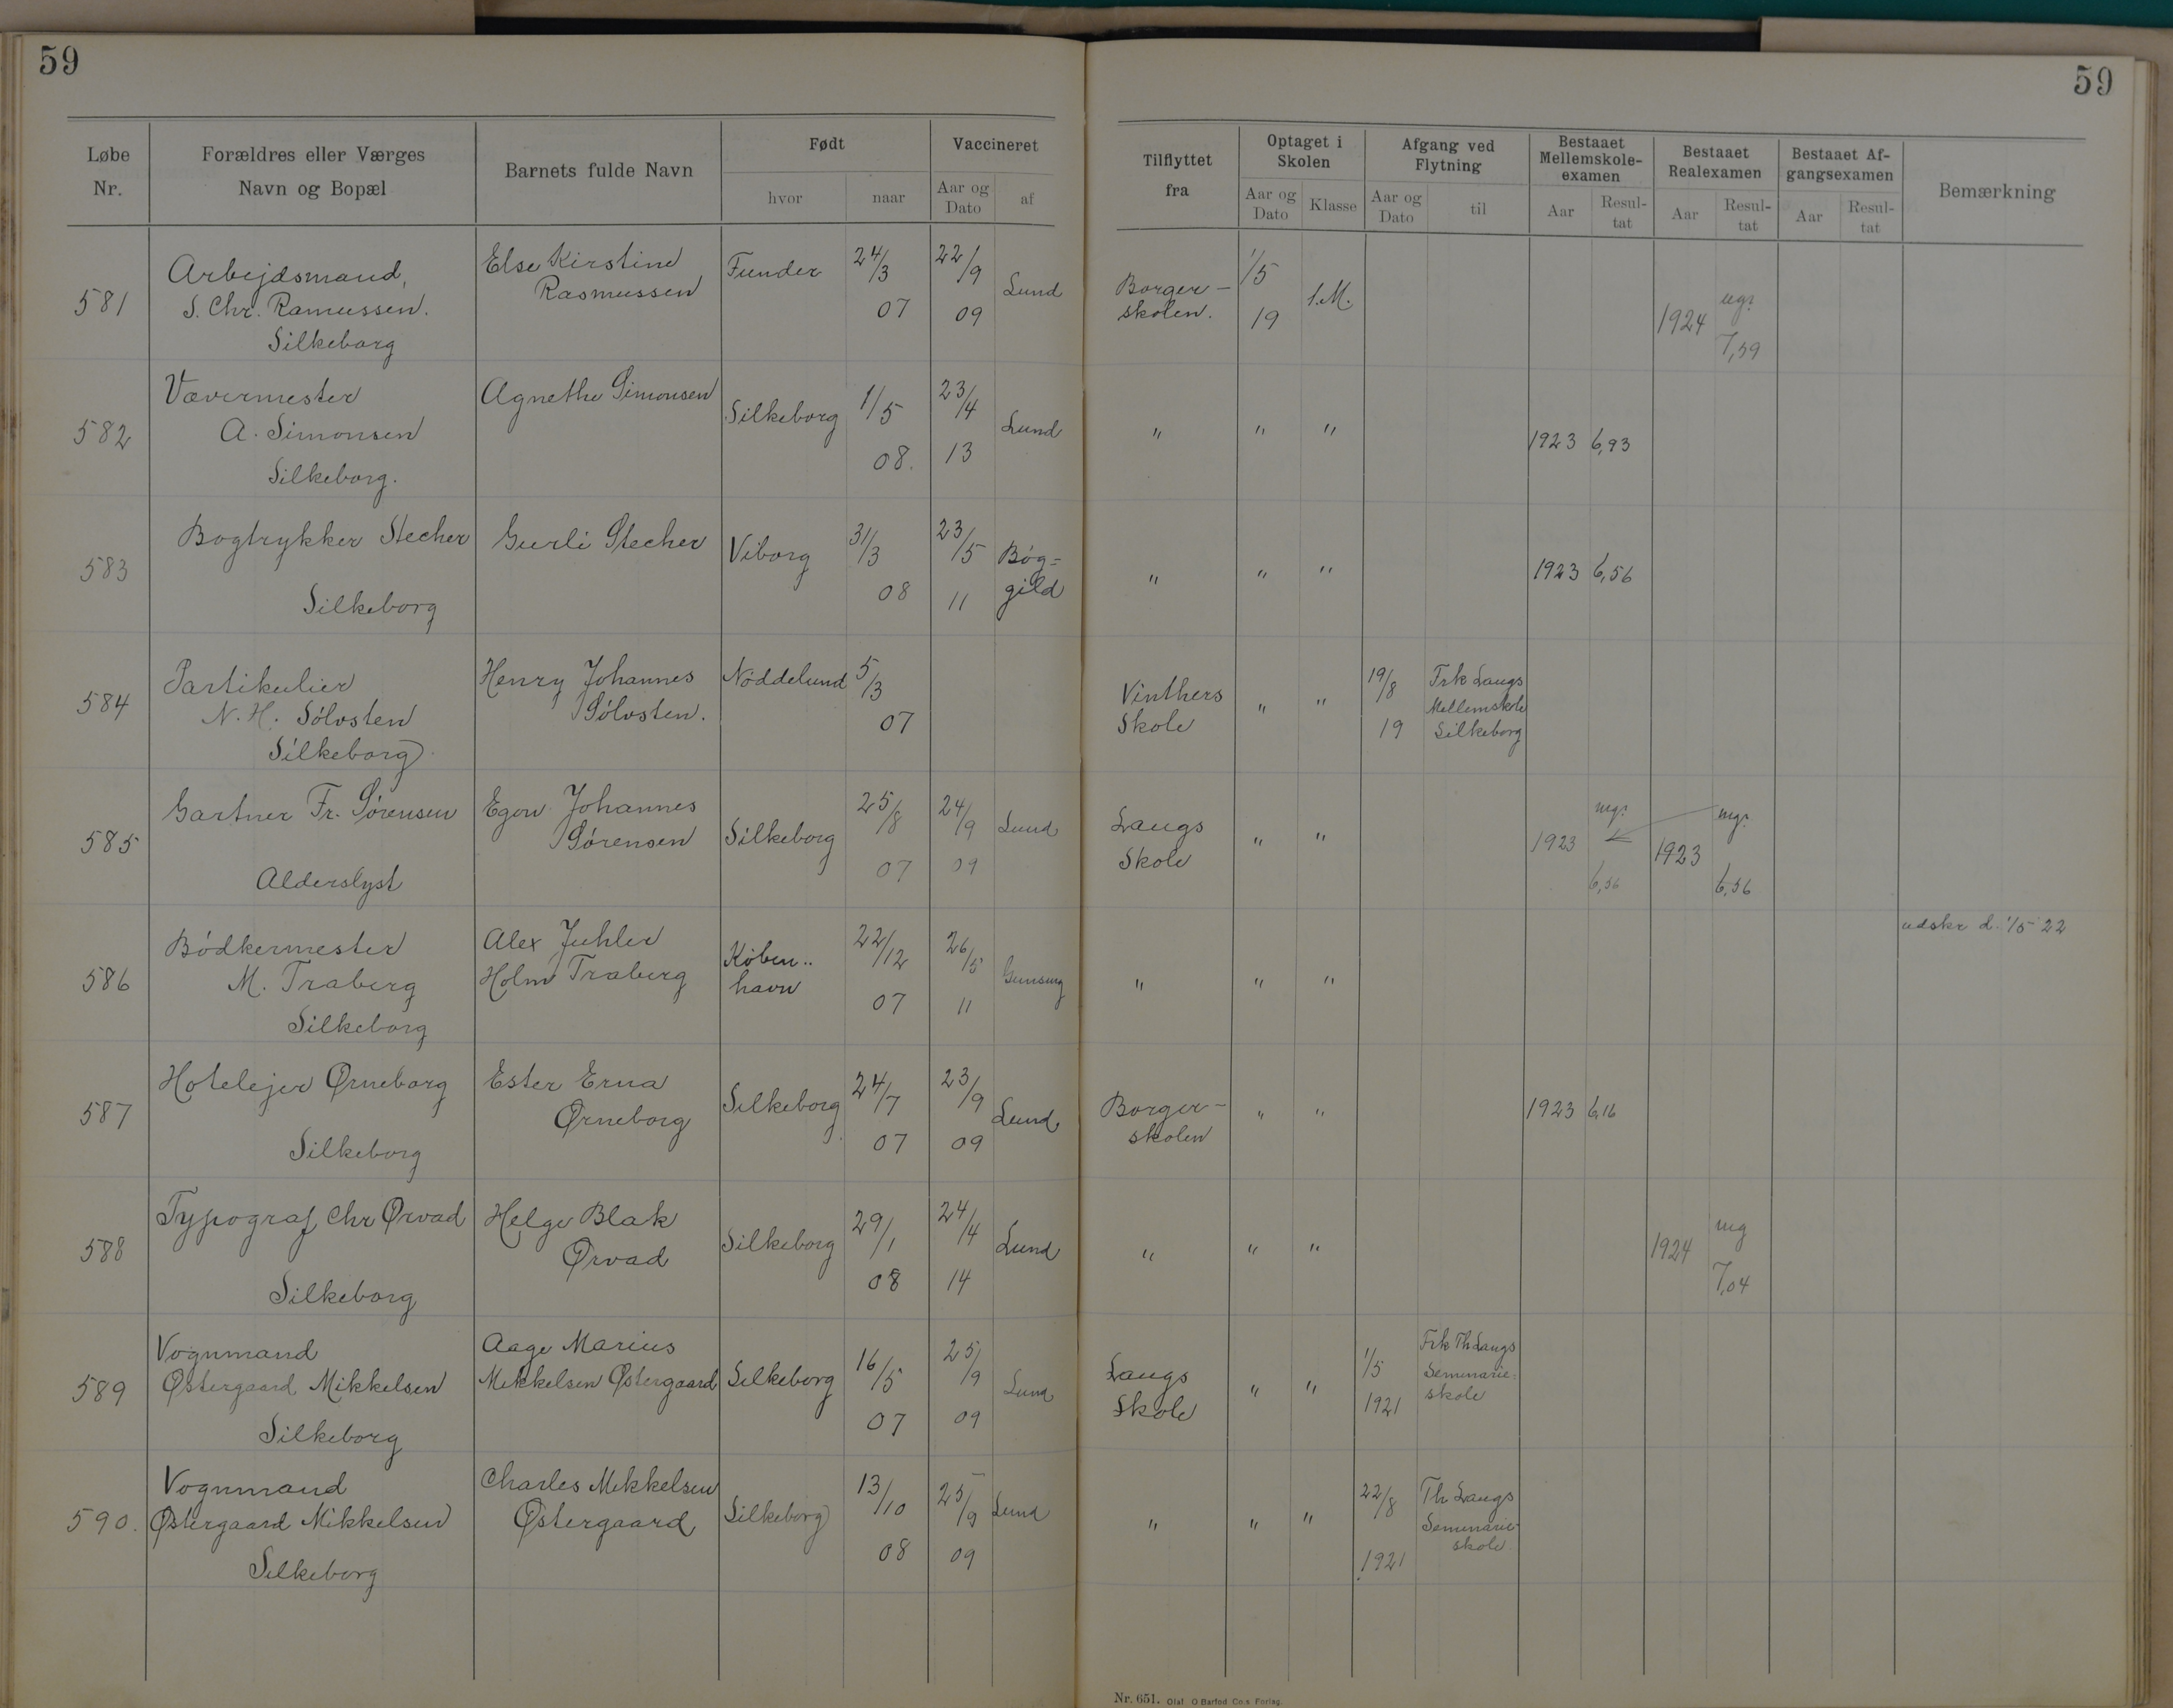 59
59
Løbe Nr.
Forældres eller Værges Navn og Bopæl
Barnets fulde Navn
Født
hvor
naar
Vaccineret
Aar og Dato
af
Tilflyttet fra
Optaget i Skolen
Aar og Dato
Klasse
Afgang ved Flytning
Aar og Dato
til
Bestaaet Mellemskole-examen
Aar
Resul-tat
Bestaaet Realexamen
Aar
Resul-tat
Bestaaet Af-gangsexamen
Aar
Resul-tat
Bemærkning
581
Arbejdsmand,
S. Chr. Ramussen.
Silkeborg
Else Kirstine
Rasmussen
Funder
24/3
07
22/9
09
Lund
Borger-
skolen.
1/5
19
1.M.
1924
ug?
7,59
582
Vævermester
A. Simonsen
Silkeborg.
Agnethe Simonsen
Silkeborg
1/5
08.
23/4
13
Lund
" " "
1923 6,93
583
Bogtrykker Stecher
Silkeborg
Gurli Stecher
Viborg
31/3
08
23/5
11
Bøg=
gild
" " "
1923 6,56
584
Partikulier
N. H. Sólvsten
Silkeborg
Henry Johannes
Sólvsten.
Nöddelund
5/3
07
Vinthers
Skole
" "
19/8
19
Frk Langs
Mellemskole
Silkeborg
585
Gartner Fr. Sørensen
Alderslyst
Egon Johannes
Sórensen
Silkeborg
25/8
07
24/9
09
Lund
Langs
Skole
" "
1923
mg?
6,56
1923
mg?
6,56
586
Bódkermester
M. Traberg
Silkeborg
Alex Juhler
Holm Traberg
Köben..
havn
22/12
07
26/5
11
" " "
udskr d. 1/5 22
587
Hotelejer Ørneborg
Silkeborg
Ester Erna
Ørneborg
Silkeborg
24/7
07
23/9
09
Lund
Borger-
skolen
" "
1923 6,16
588
Typograf Chr Ørvad
Silkeborg
Helge Blak
Ørvad
Silkeborg
29/1
08
24/4
14
Lund
" " "
1924
mg
7,04
589
Vognmand
Østergaard Mikkelsen
Silkeborg
Aage Marius
Mikkelsen Østergaard
Silkeborg
16/5
07
25/9
09
Lund
Langs
Skole
" "
1/5
1921
Frk Th Langs
Seminarie=
skole
590.
Vognmand
Østergaard Mikkelsen
Silkeborg
Charles Mikkelsen
Østergaard
Silkeborg
13/10
08
25/9
09
Lund
" " "
22/8
1921
Th Langs
Seminarie-
skole
Nr. 651. Olaf O Barfod Co.s Forlag.